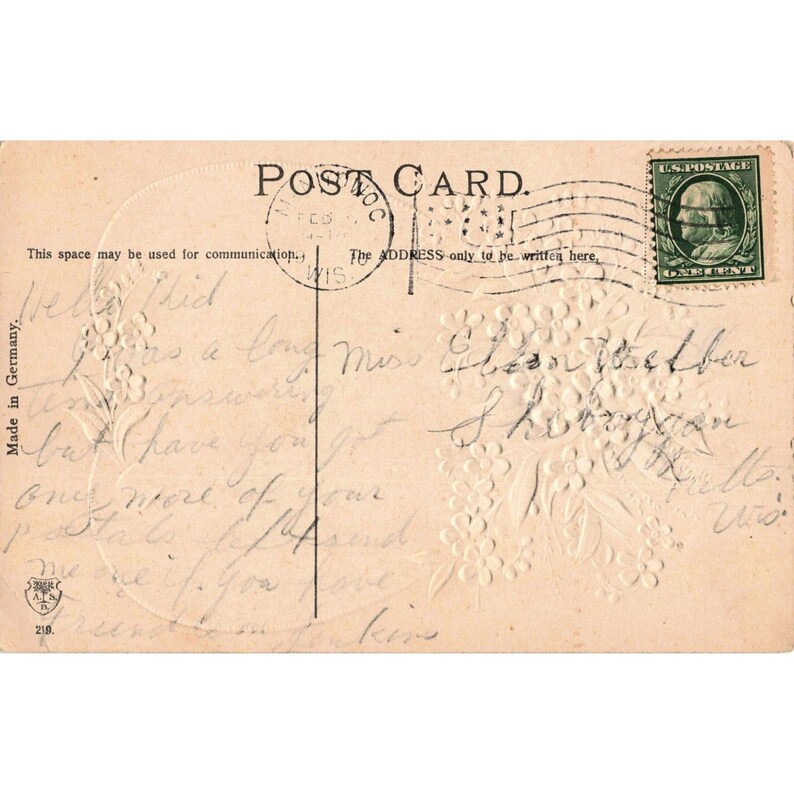 POST CARD.
WIS.
FEB
10
U.S. POSTAGE
ONE CENT
This space may be used for communication.
The ADDRESS only to be written here.
Made in Germany.
Hello Kid
I was a long
time answering
but have you got
any more of your
postals left send
me one if you have
Friend
Miss Ellen
Sheboygan
Falls.
Wis
A. S.
B.
219.